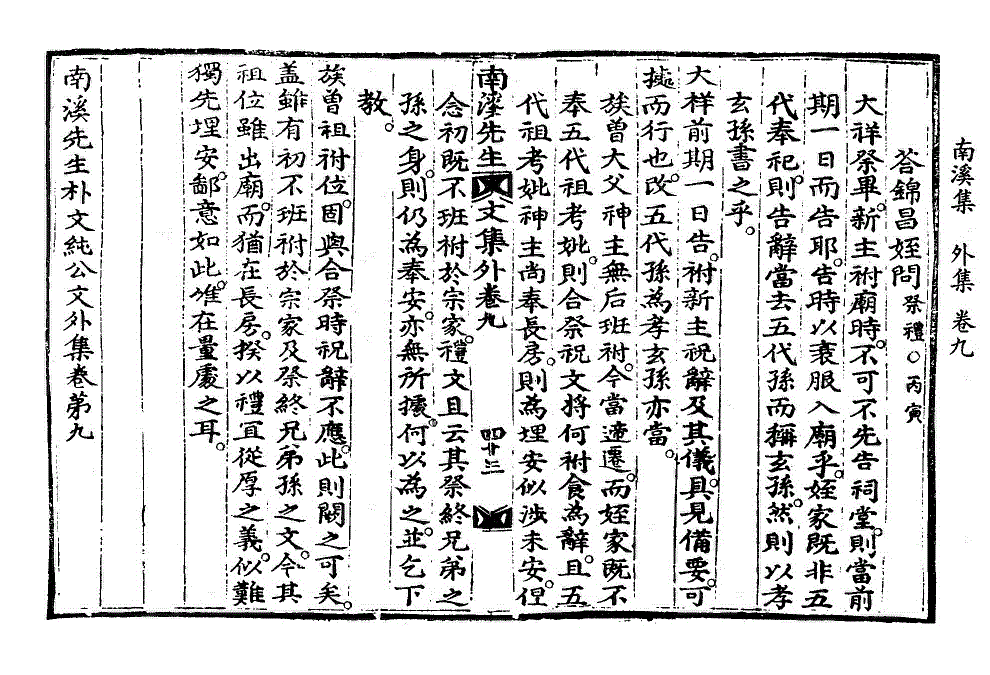 南溪集　外集　卷九
答錦昌姪問 祭禮○丙寅
大祥祭畢。新主祔廟時。不可不先告祠堂。則當前
期一日而告耶。告時以衰服入廟乎。姪家既非五
代奉祀。則告辭當去五代孫而稱玄孫。然則以孝
玄孫書之乎。
大祥前期一日告。祔新主祝辭及其儀。具見備要。可
據而行也。改五代孫爲孝玄孫亦當。
族曾大父神主無后班祔。今當遞遷。而姪家既不
奉五代祖考妣。則合祭祝文將何祔食爲辭。且五
代祖考妣神主尚奉長房。則爲埋安似涉未安。但
南溪先生文集外卷九　四十三
念初既不班祔於宗家。禮文且云其祭終兄弟之
孫之身。則仍爲奉安。亦無所據。何以爲之。並乞下
教。
族曾祖祔位。固與合祭時祝辭不應。此則闕之可矣。
盖雖有初不班祔於宗家及祭終兄弟孫之文。今其
祖位雖出廟。而猶在長房。揆以禮宜從厚之義。似難
獨先埋安。鄙意如此。惟在量處之耳。
南溪先生朴文純公文外集卷第九